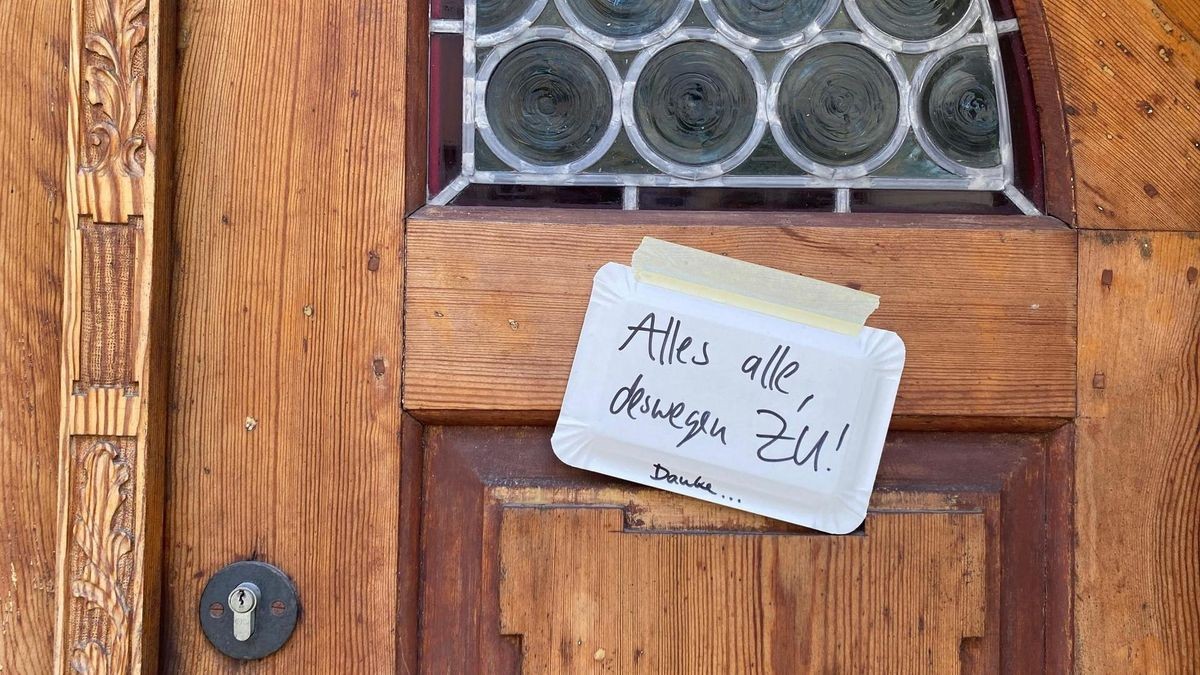 Alles alle,
deswegen ZU!
Danke...